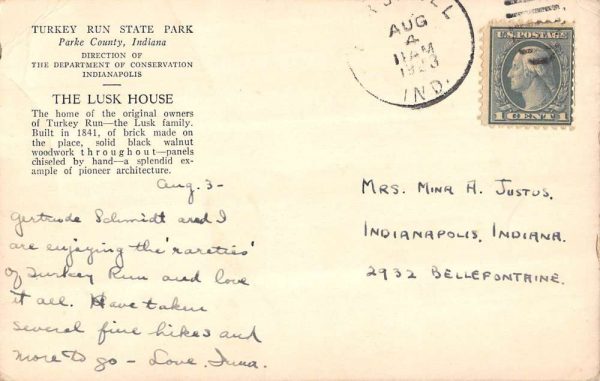 TURKEY RUN STATE PARK
Parke County, Indiana
DIRECTION OF
THE DEPARTMENT OF CONSERVATION
INDIANAPOLIS
THE LUSK HOUSE
The home of the original owners
of Turkey Run—the Lusk family.
Built in 1841, of brick made on
the place, solid black walnut
woodwork throughout—panels
chiseled by hand—a splendid ex-
ample of pioneer architecture.
Aug. 3-
Gertrude Schmidt and I
are enjoying the 'rareties'
of Turkey Run and love
it all. Have taken
several fine hikes and
more to go - Love,
AUG
4
11 AM
IND.
U.S. POSTAGE
1 CENT 1
MRS. MINA A. JUSTUS,
INDIANAPOLIS, INDIANA.
2932 BELLEFONTAINE.